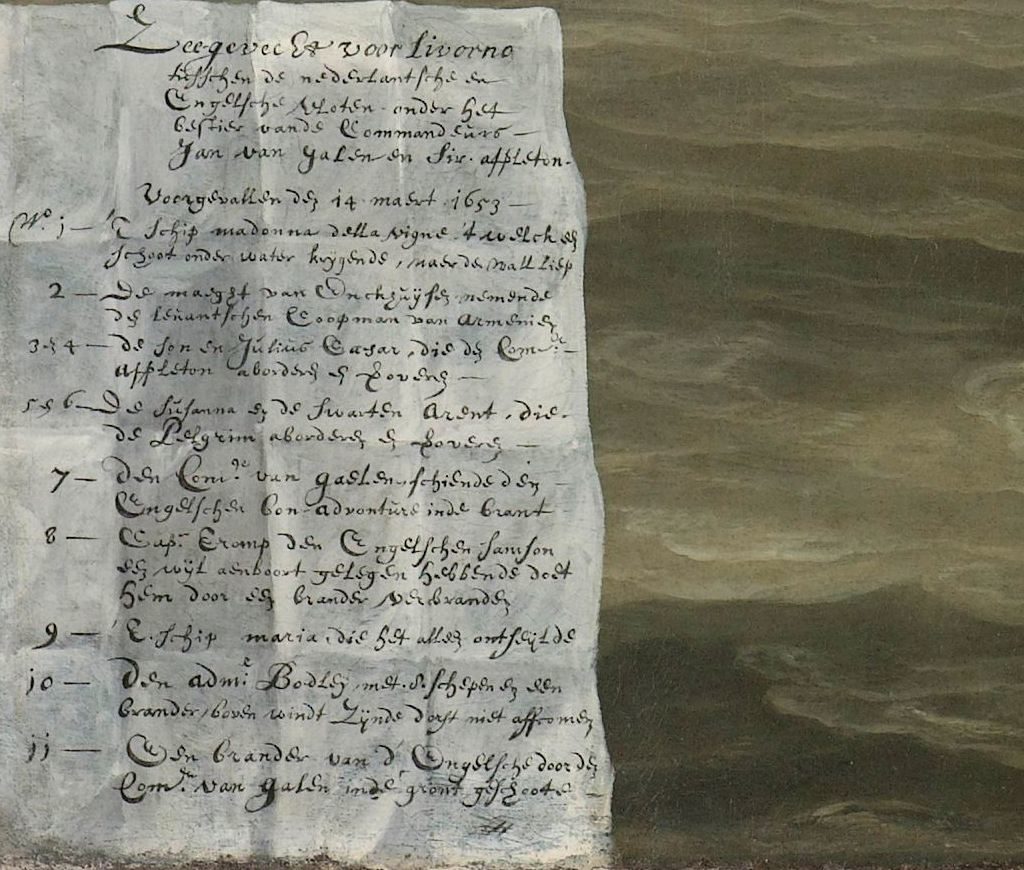 Zeegevecht voor Livorno
tusschen de nederlantsche en
Engelsche vloten onder het
bestier vande Commandeurs —
Jan van Galen en Sir. appleton.
Voorgevallen den 14 maert 1653 —
No. 1 — 'T schip madonna della vigne, 't welck een
schoot onder water krygende, naer de wall liep
2 — De maeght van Enckhuysen nemende
den levantschen Coopman van Armenien
3 en 4 — de son en Julius Caesar, die den Comr. —
Appleton aborderen en Roveren —
5 en 6 — De susanna en de swarten Arent, die
de Pelgrim aborderen en Roveren —
7 — Den Comre. van gaelen, schiende den —
Engelschen bon-advonture inde brant
8 — Capn. Tromp den Engelschen samson
een wyl aenboort gelegen hebbende doet
hem door een brander verbranden
9 — T. schip maria, die het allen ontseylde
10 — Den admr. Bodley, met .8. schepen en een
brander, boven windt zynde dorst niet affcomen
11 — Een brander van d' Engelsche door den
Comr. van galen inde gront geschoote —